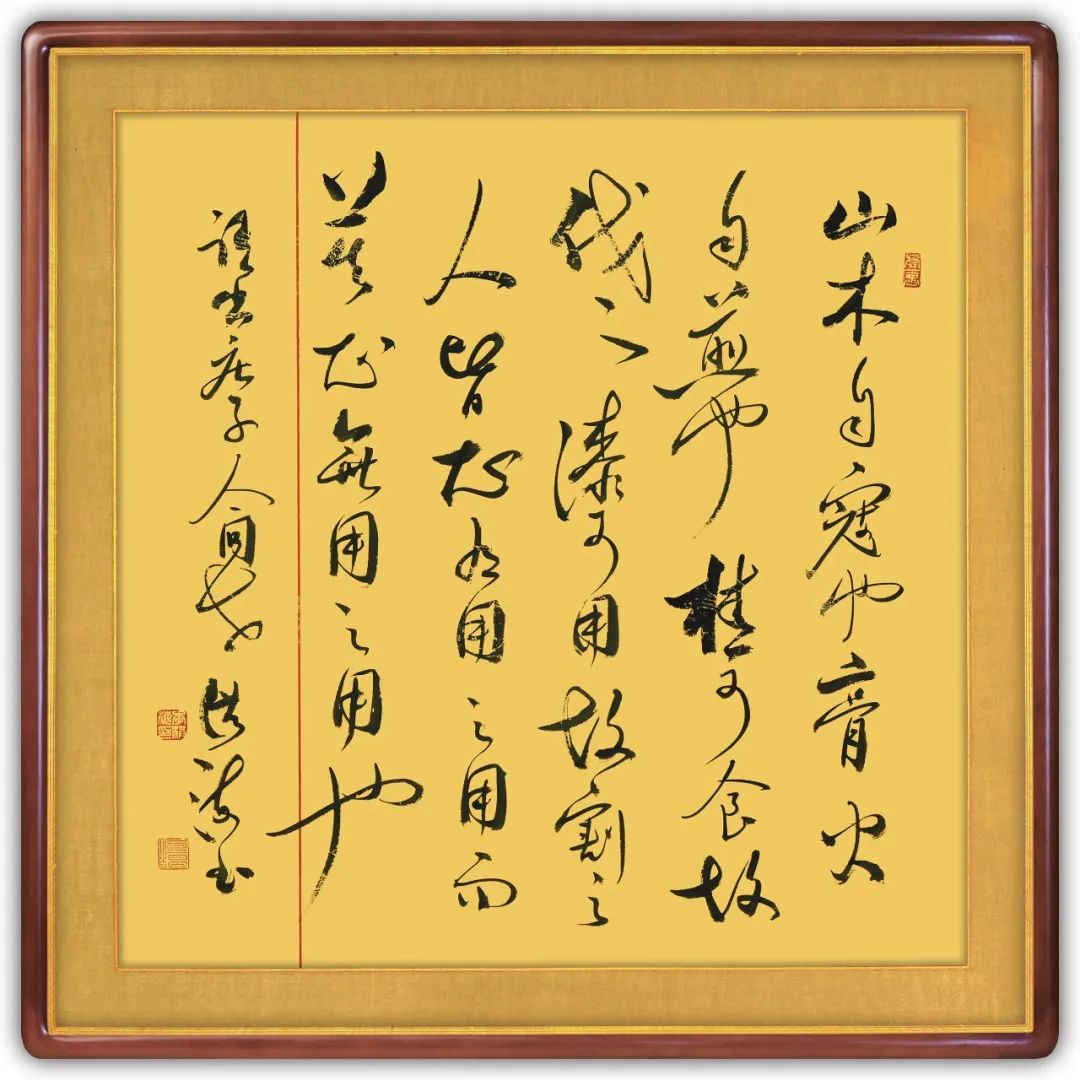 山木自寇也膏火
自煎也桂可食故
伐之漆可用故割之
人皆知有用之用而
莫知無用之用也
语出庄子人间世 书